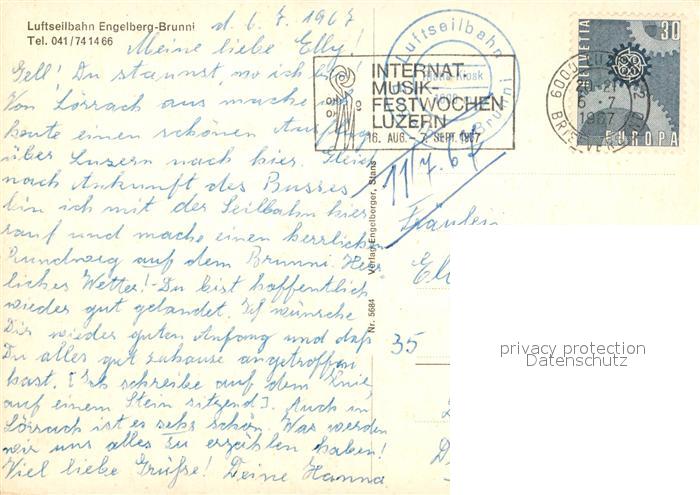 Luftseilbahn Engelberg-Brunni
Tel. 041/741466
d. 6.7.1967
Meine liebe Elly!
Gell! Du staunst, wo ich bin!
Von Lörrach aus mache ich
heute einen schönen Ausflug
über Luzern nach hier. Gleich
nach Ankunft des Busses
bin ich mit der Seilbahn hier
rauf und mache einen herrlichen
Rundweg auf dem Brunni. Herr-
liches Wetter! - Du bist hoffentlich
wieder gut gelandet. Ich wünsche
Dir wieder guten Anfang und daß
Du alles gut zuhause angetroffen
hast. [Ich schreibe auf dem Knie,
auf einem Stein sitzend]. Auch in
Lörrach ist es sehr schön. Was werden
wir uns alles zu erzählen haben!
Viel liebe Grüße! Deine Hanna
Nr. 5684 Verlag Engelberger, Stans
Luftseilbahn
Kiosk
Brunni
INTERNAT.
MUSIK-
FESTWOCHEN
LUZERN
16. AUG. - 7. SEPT. 1967
6000 LUZERN 2
20-21
6-7
1967
BRIEFVERSAND
HELVETIA
30
EUROPA
11/7.67
Fräulein
35
privacy protection
Datenschutz